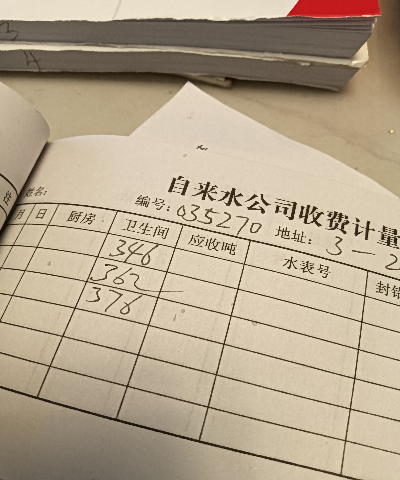 3
4
自来水公司收费计量
姓名:
编号: 035270 地址: 3-2
月 日 厨房 卫生间 应收吨 水表号 封铅
346
362
376